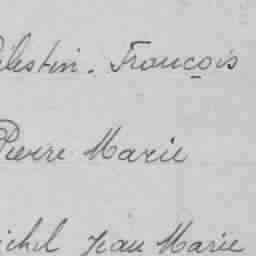 elestin. François
Pierre Marie
ichel Jean Marie